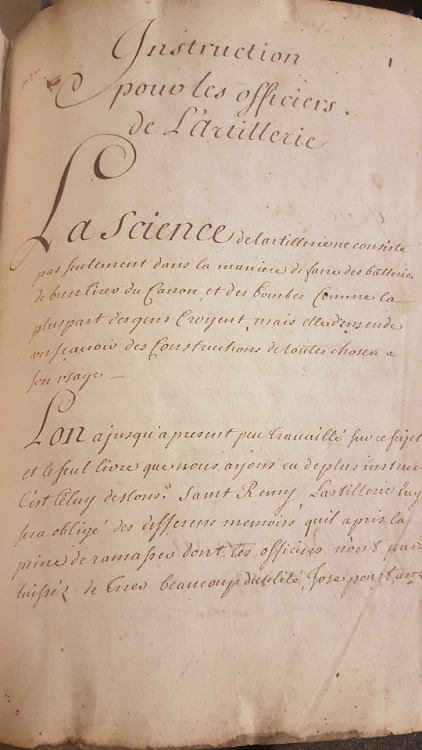 1
Instruction
pour les officiers.
de L'artillerie
La Science de lartillerie ne consiste
pas seulement dans la maniere de faire des batteries
de bien tirer du Canon, et des bombes Comme la
pluspart des gens Croyent, mais elle
sçavoir des Constructions de toutes choses a
son usage
Lon a jusqu'a present peu travaillé sur ce sujet
et le seul livre que nous ayons eu de plus
C'est Celuy de Saint Remy, Lartillerie luy
sera obligé des differens memoirs quil a pris la
peine de ramasser dont les officiers n'ont pas
laissés de tirer beaucoup dutilité, Jose pourtant